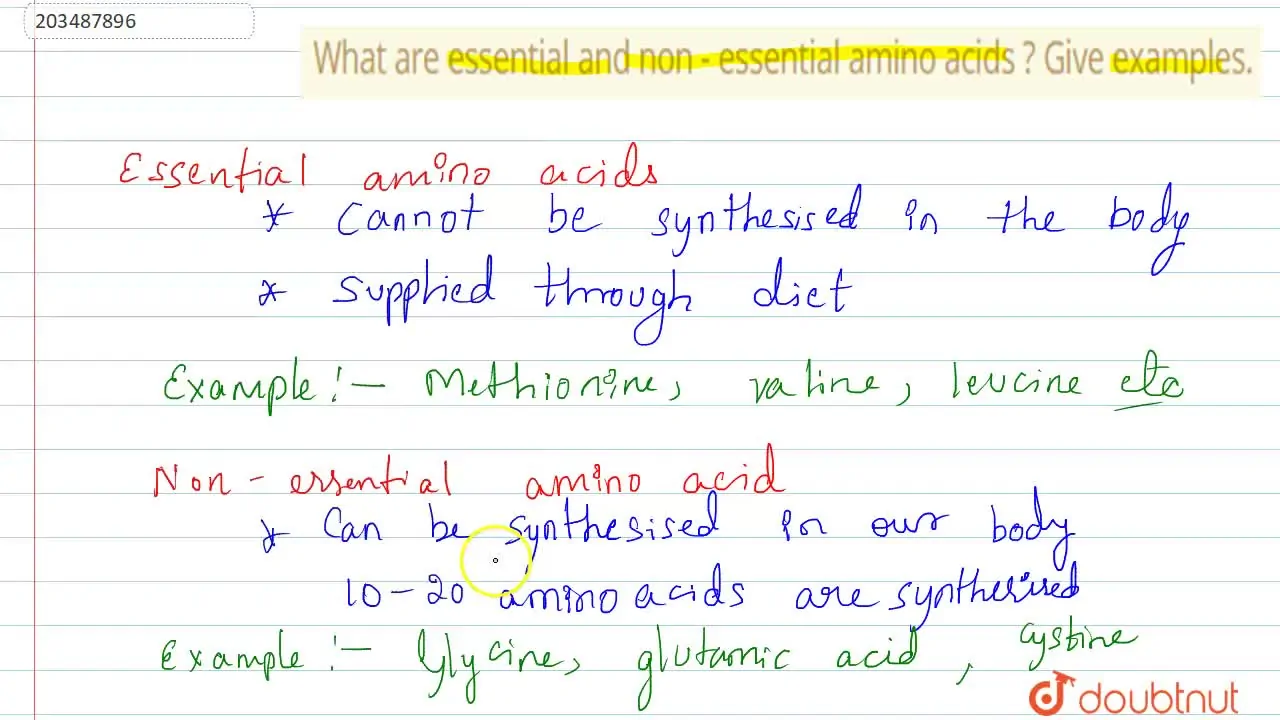 203487896
What are essential and non - essential amino acids ? Give examples.
Essential amino acids
* Cannot be synthesised in the body
* Supplied through diet
Example :- Methionine, valine, leucine etc
Non - essential amino acid
* Can be synthesised in our body
10 - 20 amino acids are synthesised
Example :- Glycine, glutamic acid, cystine
doubtnut